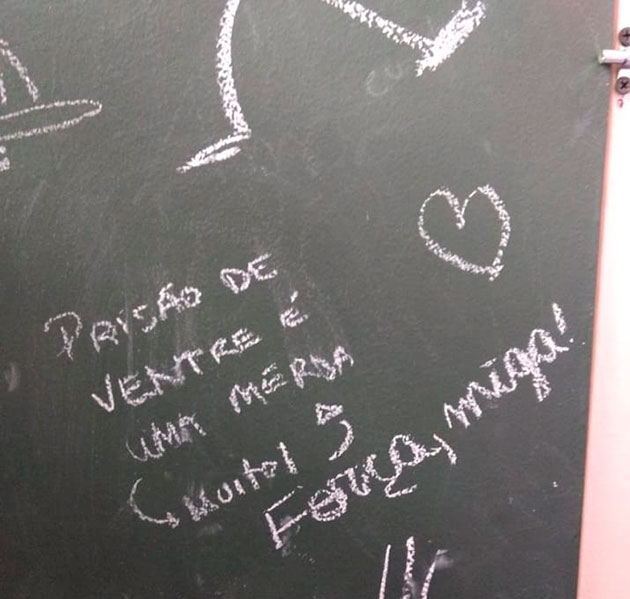 PRISÃO DE
VENTRE É
UMA MERDA
Muito!
Força, miga!